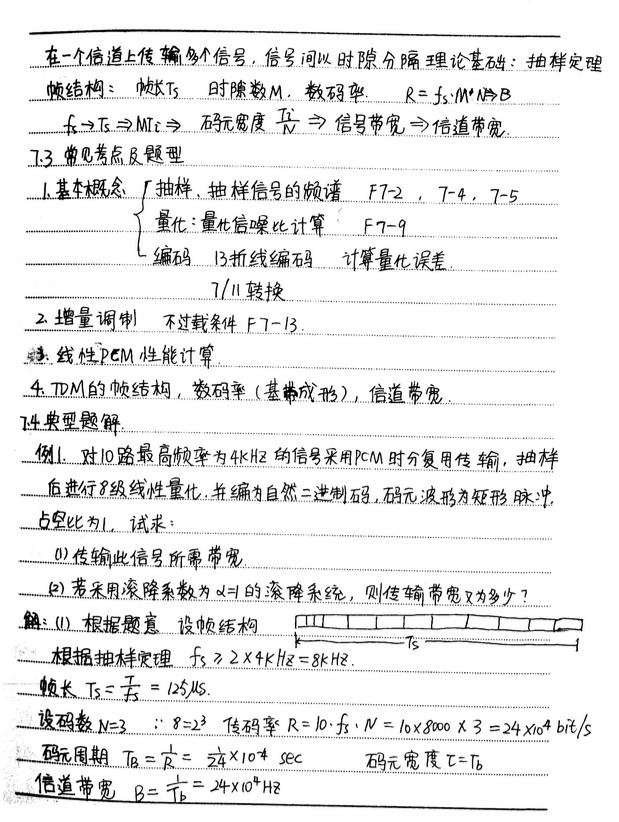 在一个信道上传输多个信号,信号间以时隙分隔 理论基础: 抽样定理
帧结构: 帧长Ts 时隙数M, 数码率 R=fs·M·N⇒B
fs→Ts⇒MTi⇒ 码元宽度 Ti/N ⇒信号带宽⇒信道带宽.
7.3 常见考点及题型
1.基本概念 { 抽样、抽样信号的频谱 F7-2 , 7-4, 7-5
量化: 量化信噪比计算 F7-9
编码 13折线编码 计算量化误差.
7/11转换
2.增量调制 不过载条件 F7-13.
3.线性PCM性能计算
4.TDM的帧结构, 数码率(基带成形), 信道带宽.
7.4典型题解
例1. 对10路最高频率为4KHZ的信号采用PCM时分复用传输, 抽样
后进行8级线性量化.并编为自然二进制码,码元波形为矩形脉冲,
占空比为1. 试求:
(1)传输此信号所需带宽
(2)若采用滚降系数为α=1的滚降系统, 则传输带宽又为多少?
解: (1) 根据题意 设帧结构
Ts
根据抽样定理 fs≥2×4KHZ=8KHZ.
帧长 Ts=T/fs=125μs.
设码数N=3 ∵8=2³ 传码率R=10·fs·N=10×8000×3=24×10⁴ bit/s
码元周期 TB=1/R=1/24×10⁻⁴ sec 码元宽度τ=Tb
信道带宽 B=1/Tb=24×10⁴HZ